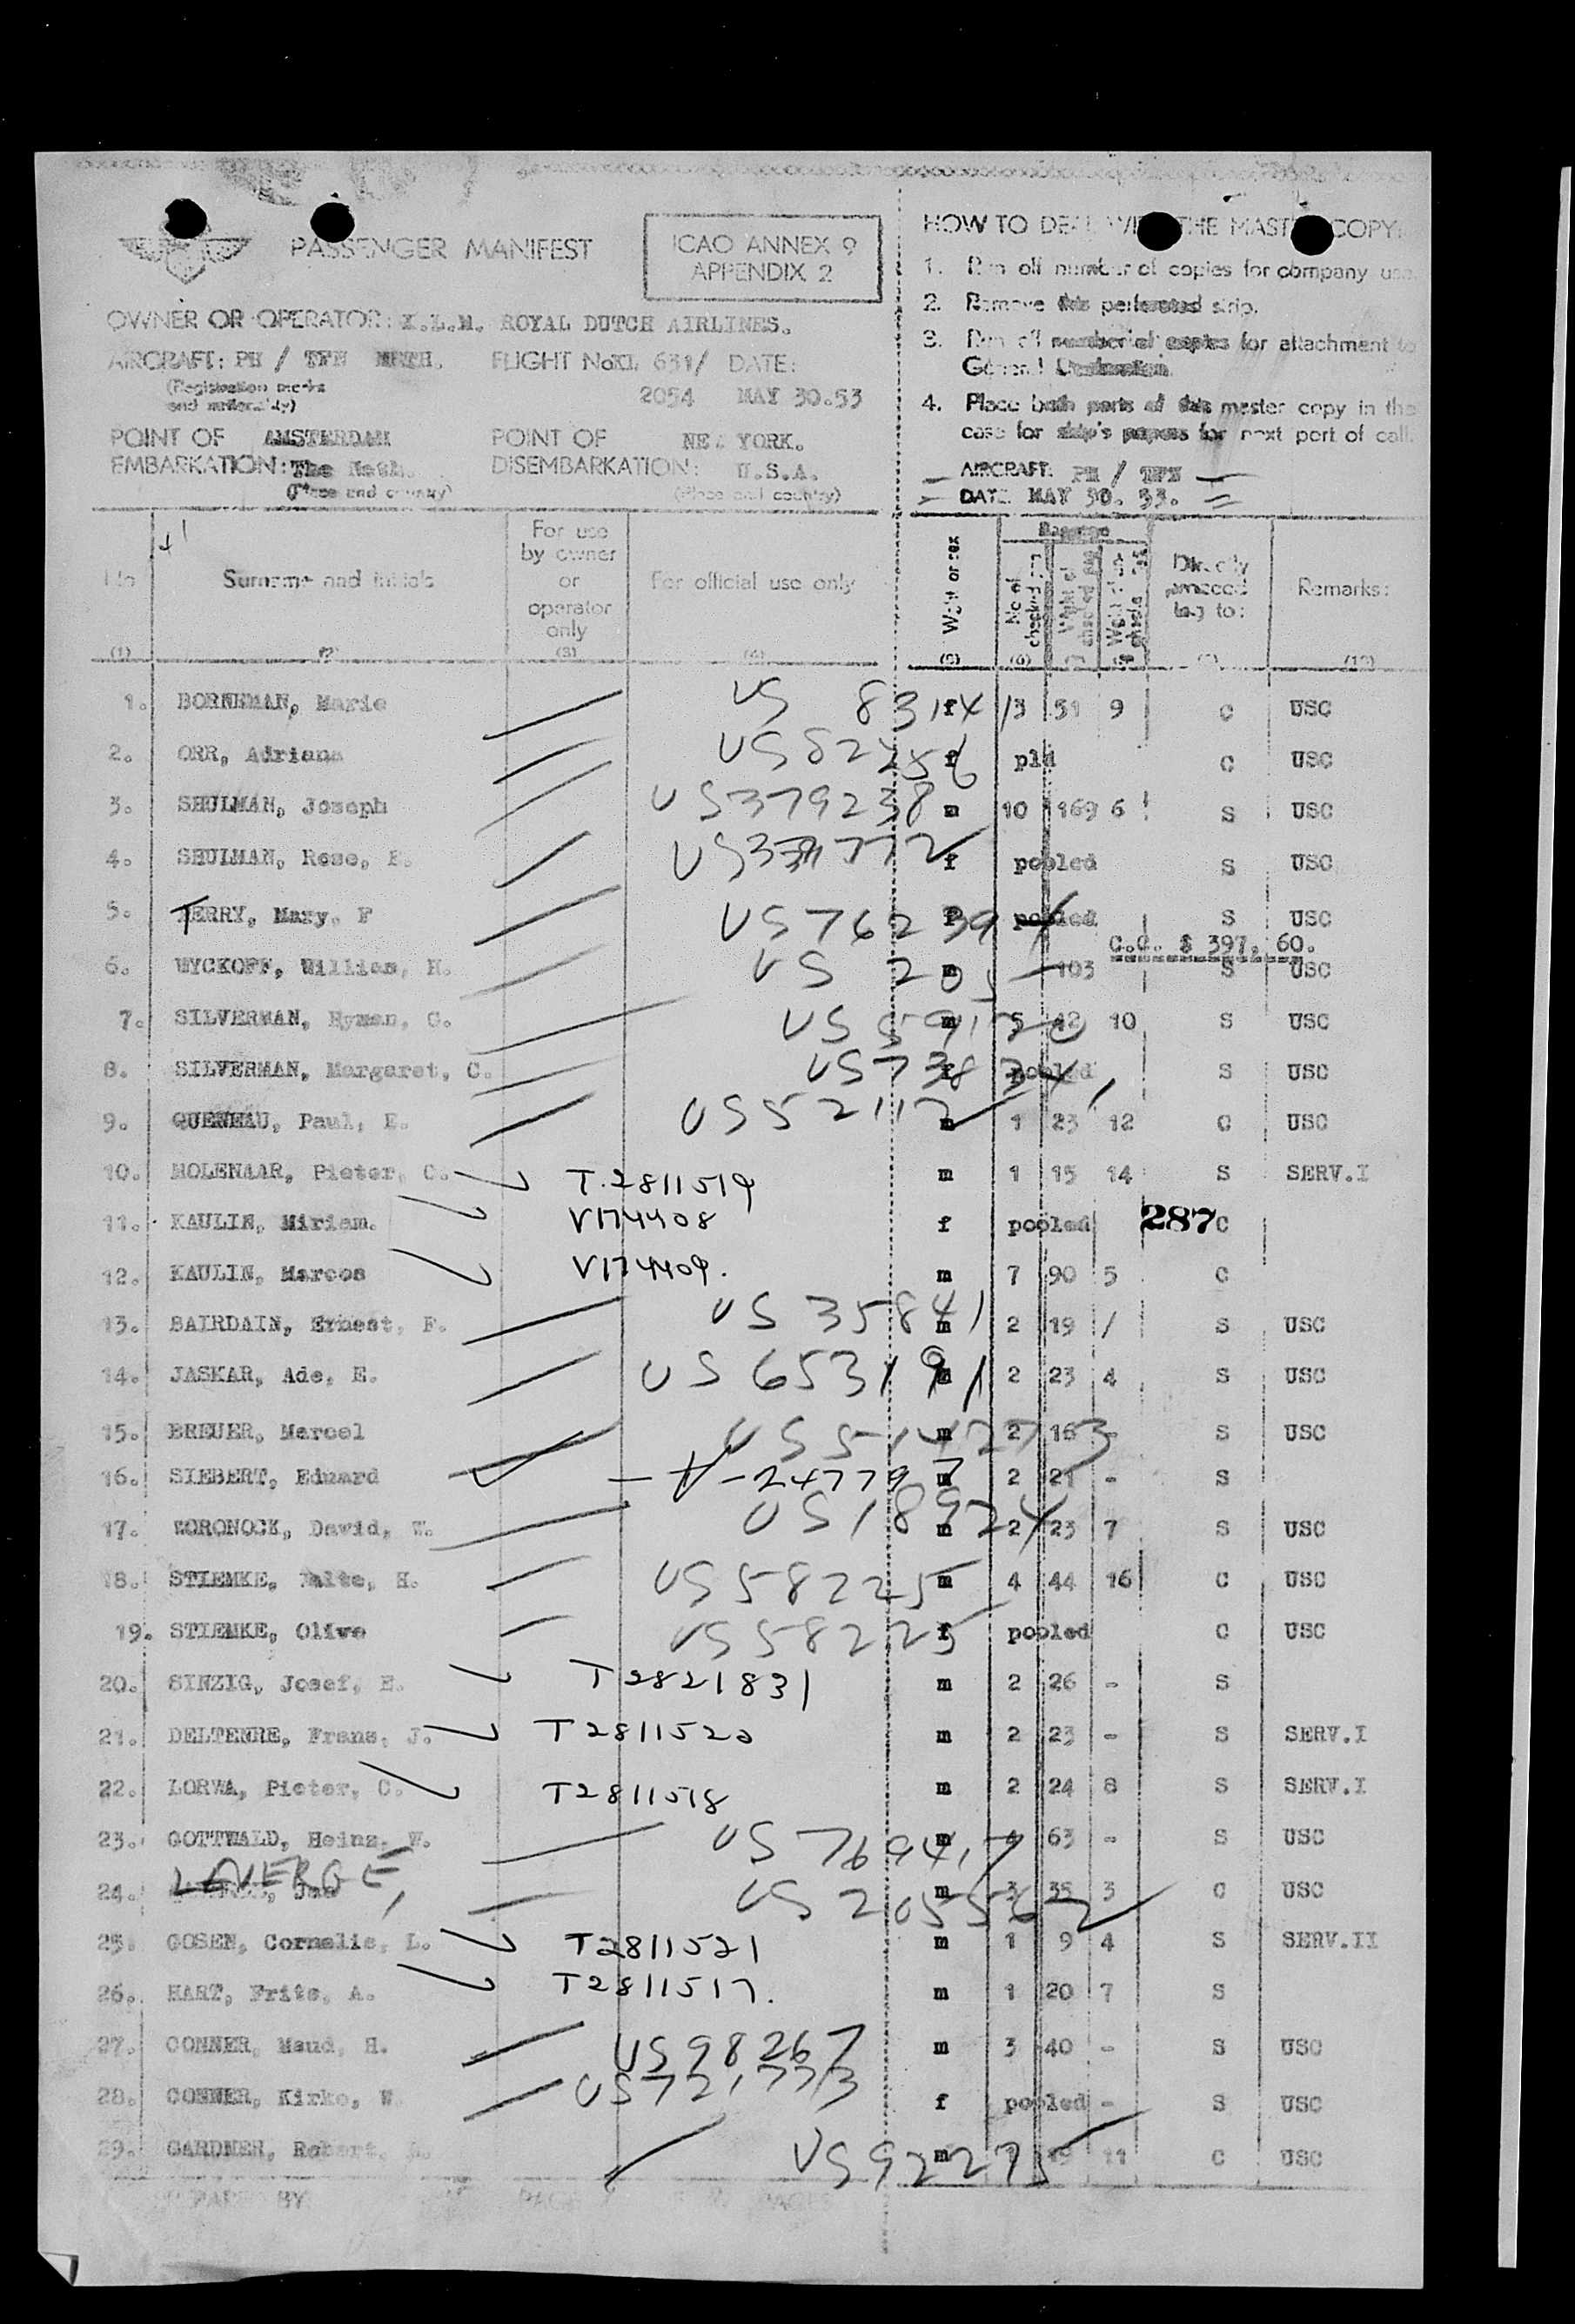 PASSENGER MANIFEST
ICAO ANNEX 9
APPENDIX 2
OWNER OR OPERATOR: K.L.M. ROYAL DUTCH AIRLINES.
AIRCRAFT: PH / TFN NETH. FLIGHT No KL 631/ DATE:
(Registration marks
and nationality)
2054 MAY 30.53
POINT OF AMSTERDAM POINT OF NEW YORK.
EMBARKATION: The Neth. DISEMBARKATION: U.S.A.
(Place and country) (Place and country)
HOW TO DEAL WITH THE MASTER COPY:
1. Run off number of copies for company use.
2. Remove this perforated strip.
3. Run off number of copies for attachment to
General Declaration
4. Place both parts of this master copy in the
case for ship's papers for next port of call.
AIRCRAFT: PH / TFN
DATE MAY 30. 53.
No Surname and initials For use by owner or operator only For official use only Wght or sex Baggage No of checked Directly proceeding to: Remarks:
(1) (3) (4) (5) (6) (10)
1. BORNEMAN, Marie US 8314 f 3 51 9 C USC
2. ORR, Adriana US 82256 f pld C USC
3. SHULMAN, Joseph US379238 m 10 169 6 S USC
4. SHULMAN, Rose, f pooled S USC
5. TERRY, Mary, F US 76239 f pooled S USC
C.C. $ 397, 60.
6. WYCKOFF, William, H. US 205 m 103 S USC
7. SILVERMAN, Hyman, C. US m 5 42 10 S USC
8. SILVERMAN, Margaret, C. US f pooled S USC
9. QUENEAU, Paul, E. US52112 m 1 23 12 C USC
10. MOLENAAR, Pieter, C. T.2811519 m 1 15 14 S SERV.I
11. KAULIN, Miriam. V174408 f pooled 287 C
12. KAULIN, Marcos V174409. m 7 90 5 C
13. BAIRDAIN, Ernest, F. US 35841 m 2 19 / S USC
14. JASKAR, Ade, E. US 653191 m 2 23 4 S USC
15. BREUER, Marcel m 2 16 - S USC
16. SIEBERT, Eduard m 2 21 - S
17. WORONOCK, David, W. US18924 m 2 23 7 S USC
18. STIEMKE, Walte, H. US 58225 m 4 44 16 C USC
19. STIEMKE, Olive US 58225 f pooled C USC
20. SINZIG, Josef, E. T2821831 m 2 26 - S
21. DELTENRE, Frans, J. T2811520 m 2 23 - S SERV.I
22. LORWA, Pieter, C. T2811518 m 2 24 8 S SERV.I
23. GOTTWALD, Heinz, W. US 76941 m 4 63 - S USC
24. LAVERGE, US 205562 m 3 35 3 C USC
25. GOSEN, Cornelis, L. T2811521 m 1 9 4 S SERV.II
26. HART, Frits, A. T2811517. m 1 20 7 S
27. CONNER, Maud, H. US98267 m 3 40 - S USC
28. CONNER, Kirke, W. US721733 f pooled - S USC
29. GARDNER, Robert, L. US92275 m 19 11 C USC
PREPARED BY: PAGE PAGES